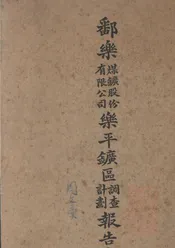 鄱樂煤鑛股份有限公司樂平鑛區調查計劃報告